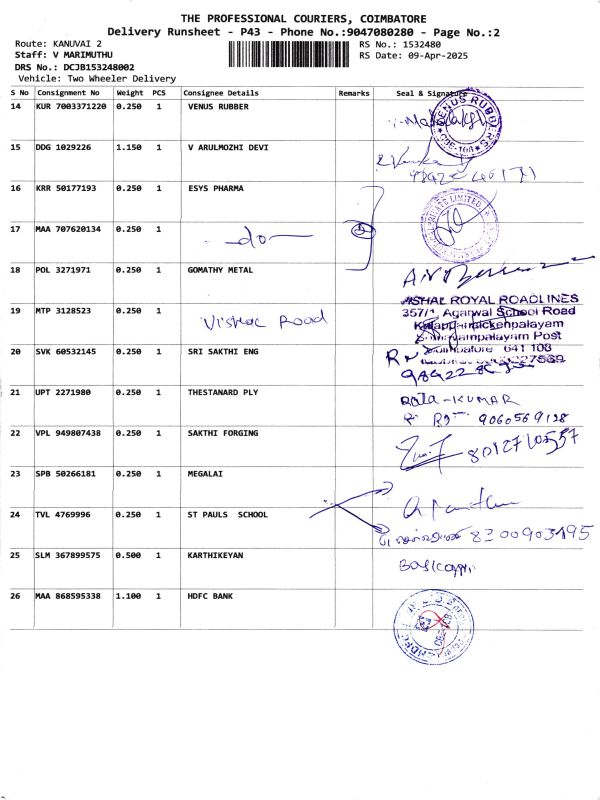 THE PROFESSIONAL COURIERS, COIMBATORE
Delivery Runsheet - P43 - Phone No.:9047080280 - Page No.:2
Route: KANUVAI 2
RS No.: 1532480
Staff: V MARIMUTHU
RS Date: 09-Apr-2025
DRS No.: DCJB153248002
Vehicle: Two Wheeler Delivery
S No Consignment No Weight PCS Consignee Details Remarks Seal & Signature
14 KUR 7003371220 0.250 1 VENUS RUBBER
VENUS RUBBERS
CBE-108
15 DDG 1029226 1.150 1 V ARULMOZHI DEVI
16 KRR 50177193 0.250 1 ESYS PHARMA
PRIVATE LIMITED
17 MAA 707620134 0.250 1 -do-
18 POL 3271971 0.250 1 GOMATHY METAL
19 MTP 3128523 0.250 1 Vishal Road
VISHAL ROYAL ROADLINES
357/1, Agarwal School Road
Post
Coimbatore 641 108
20 SVK 60532145 0.250 1 SRI SAKTHI ENG
21 UPT 2271980 0.250 1 THESTANARD PLY
Raja-KUMAR
9060569128
22 VPL 949807438 0.250 1 SAKTHI FORGING
8012710557
23 SPB 50266181 0.250 1 MEGALAI
24 TVL 4769996 0.250 1 ST PAULS SCHOOL
8300903195
25 SLM 367899575 0.500 1 KARTHIKEYAN
26 MAA 868595338 1.100 1 HDFC BANK